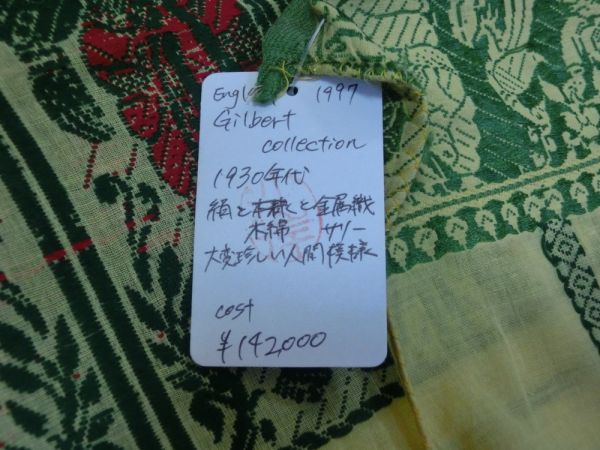 England 1997
Gilbert
collection
1930年代
絹と木綿と金属繊
木綿 サリー
大変珍しい人間模様
cost
¥142,000